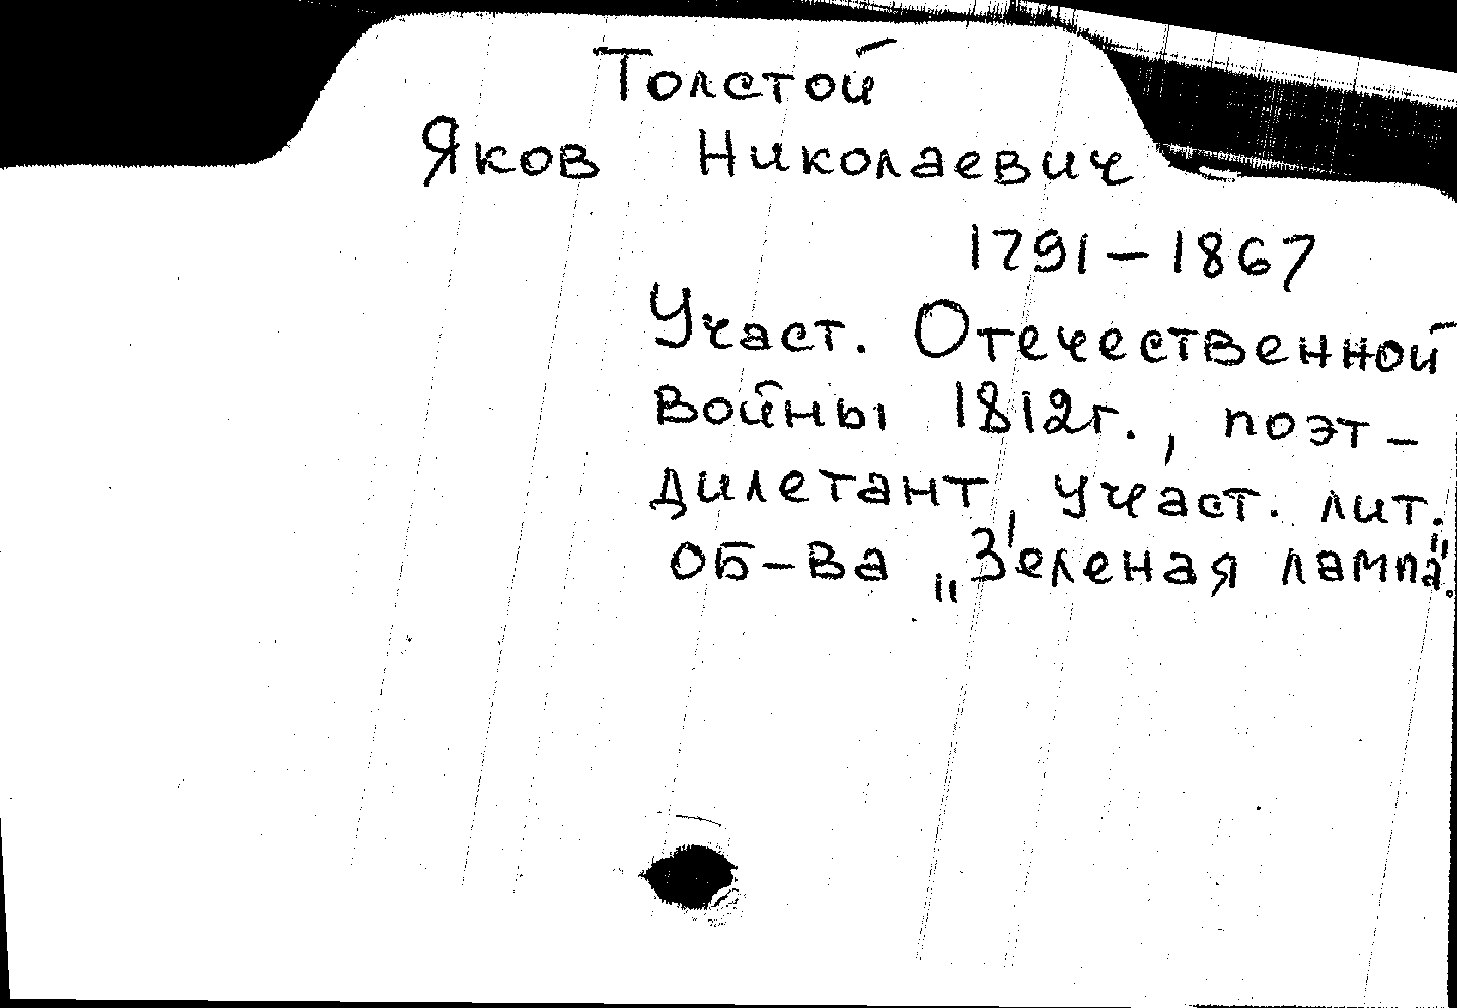 Толстой
Яков Николаевич
1791–1867
Участ. Отечественной
войны 1812г., поэт-
дилетант, участ. лит.
об-ва „Зеленая лампа".